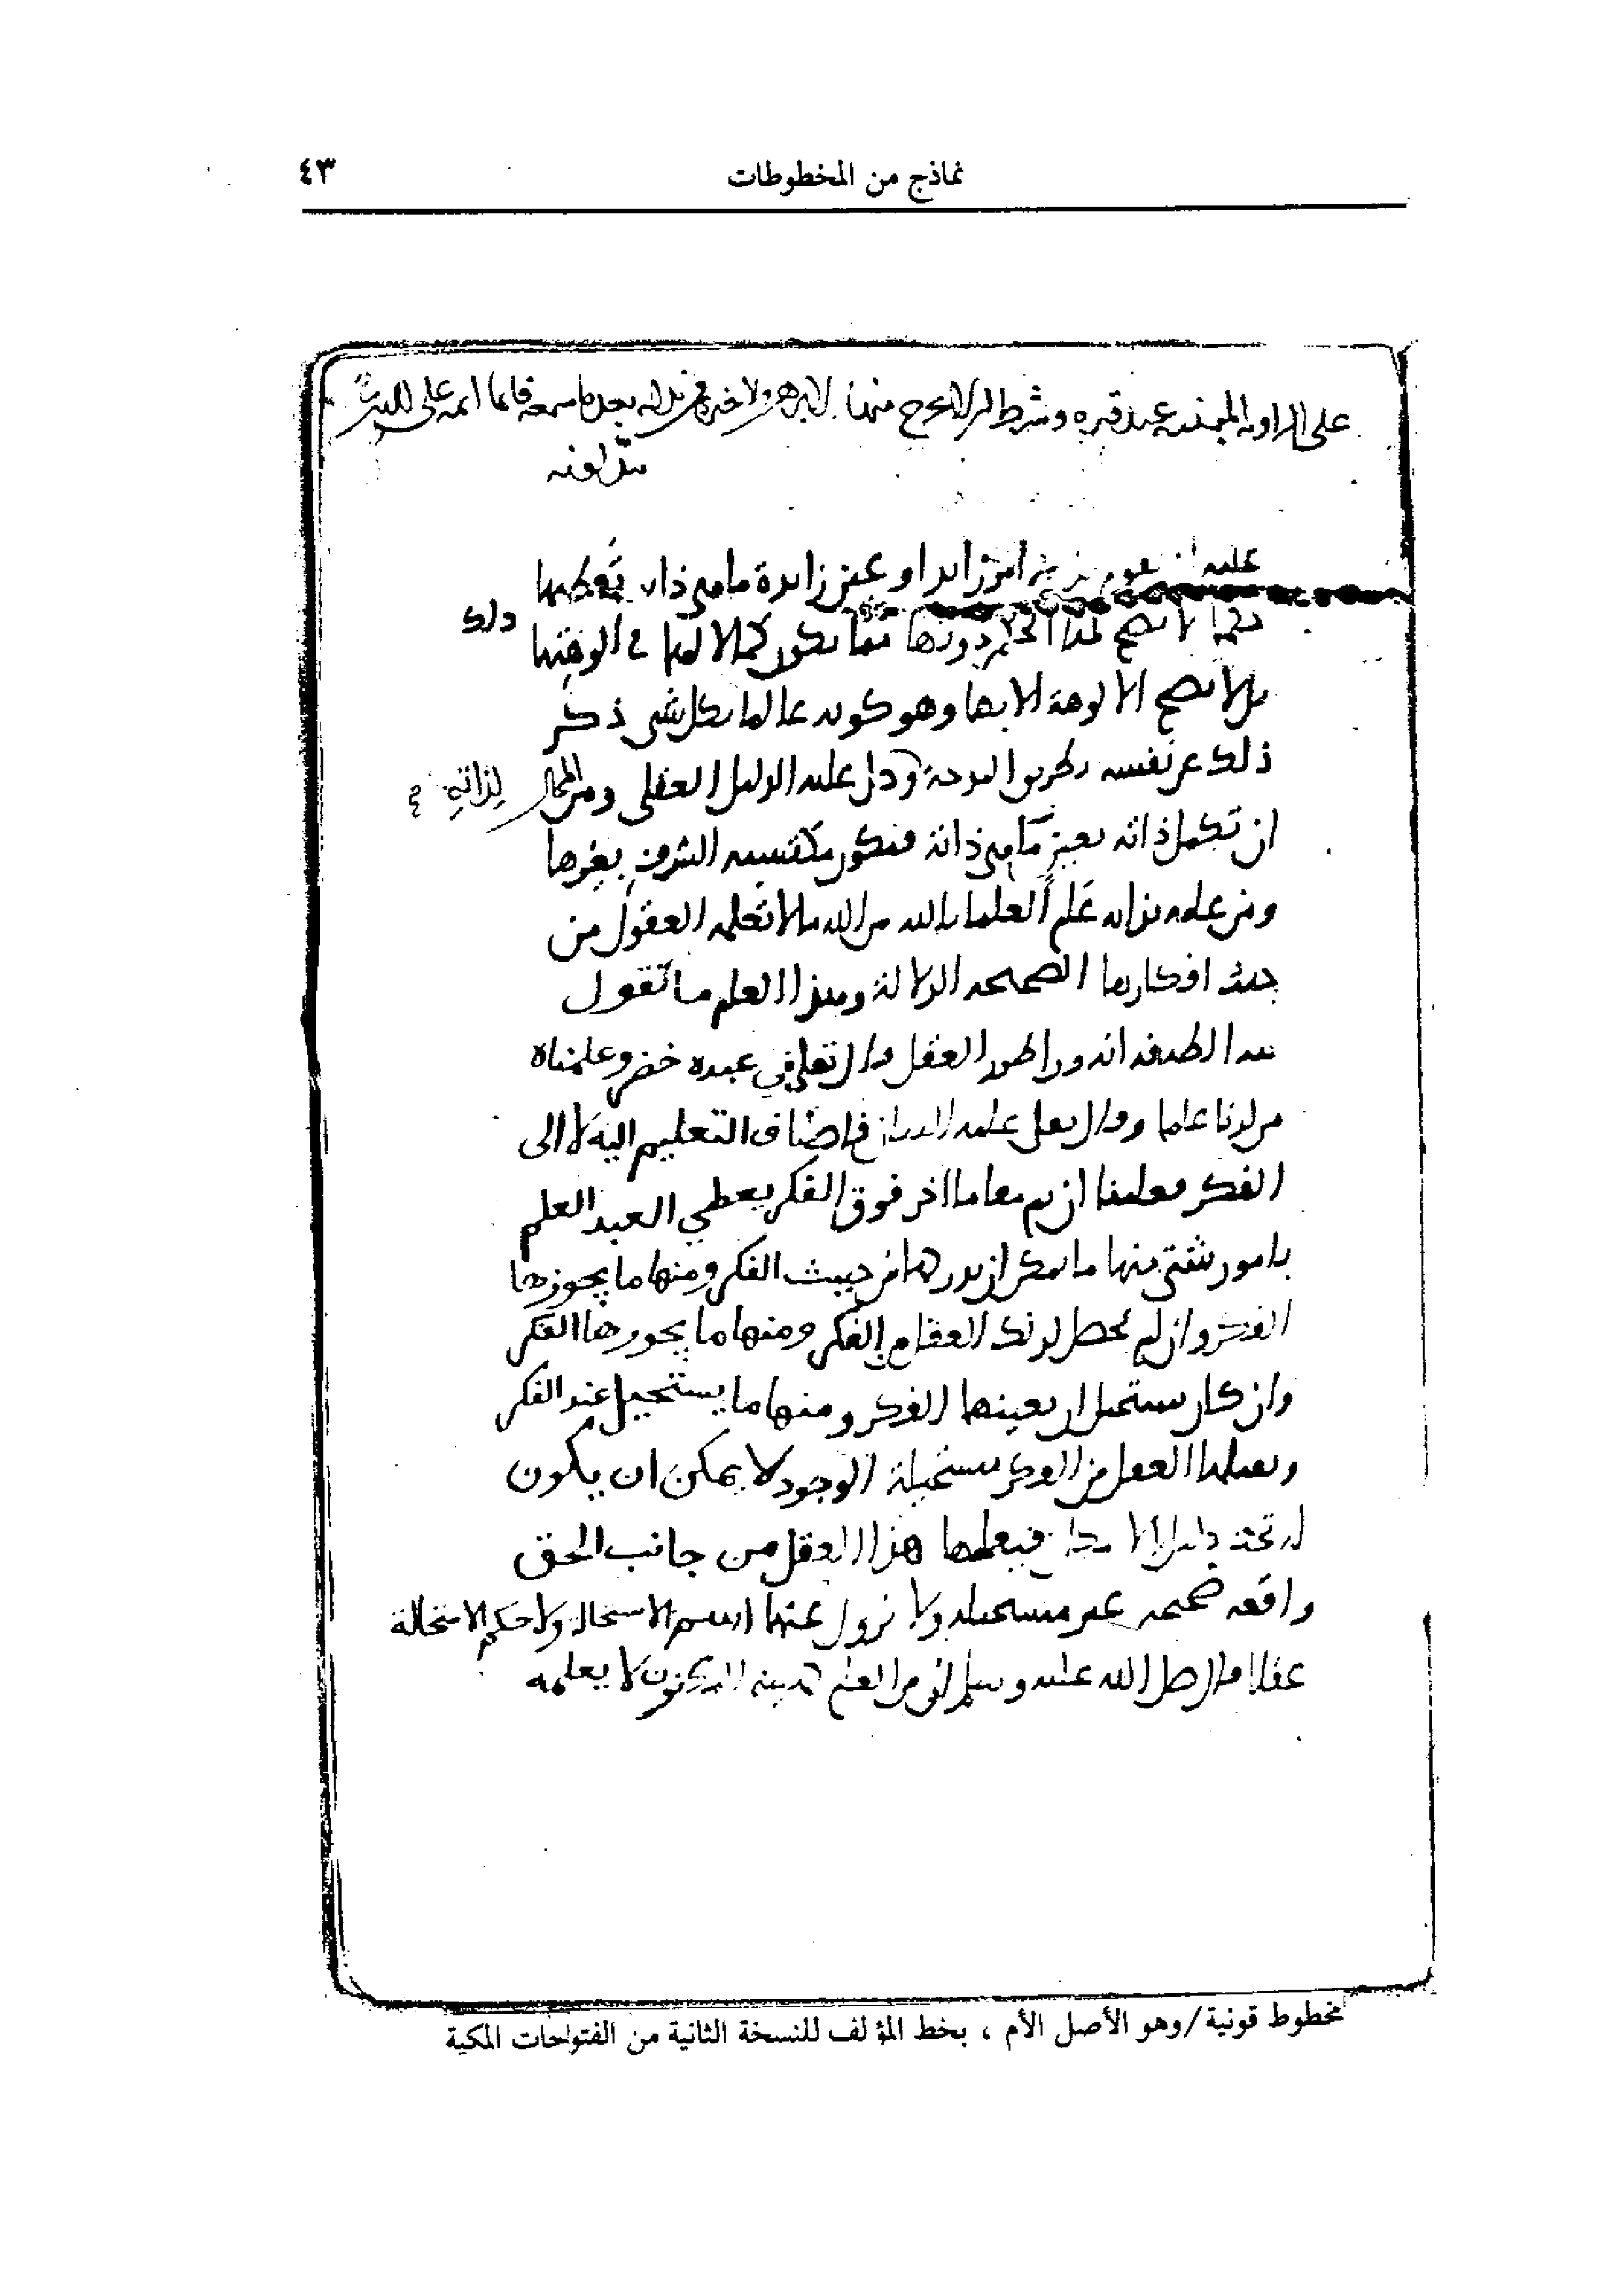 نماذج من المخطوطات
٤٣
على الزاوية المبنية عند قبره وشرط ان لا يخرج منها لا برهن ولا غيره فمن بدله بعد ما سمعه فانما اثمه على الذين
يبدلونه
امر زايد او عين زايدة ما هي ذاته تعطيها
لا تصح لهذا دونها مما يكون كمالا لها في الوهتها ذلك
بل لا تصح الالوهة الا بها وهو كونه عالما بكل شي ذكر
ذلك عن نفسه بطريق المدحة ودل عليه الدليل العقلي ومن المحال لذاته
ان تكمل ذاته بغير ما هي ذاته فتكون مكتسبة الشرف بغيرها
ومن علمه بذاته علم العلما بالله من الله ما لا تعلمه العقول من
حيث افكارها الصحيحة الدلالة وهذا العلم ما تقول
فيه الطايفة انه ورا طور العقل قال تعلى في عبده خضر وعلمناه
من لدنا علما وقال تعلى علمه البيان فاضاف التعليم اليه لا الى
الفكر فعلمنا ان ثم مقاما اخر فوق الفكر يعطي العبد العلم
بامور شتى منها ما يمكن ان يدركها من حيث الفكر ومنها ما يجوزها
الفكر وان لم يحصل لذلك العقل من الفكر ومنها ما يجوزها الفكر
وان كان يستحيل ان يعينها الفكر ومنها ما يستحيل عند الفكر
ويقبلها العقل من الفكر مستحيلة الوجود لا يمكن ان يكون
له تحت دليل الامكان فيعلمها هذا العقل من جانب الحق
واقعة صحيحة غير مستحيلة ولا يزول عنها اسم الاستحالة ولا حكم الاستحالة
عقلا قال صلى الله عليه وسلم ان من العلم كهيئة المكنون لا يعلمه
مخطوط قونية/وهو الأصل الأم ، بخط المؤلف للنسخة الثانية من الفتوحات المكية